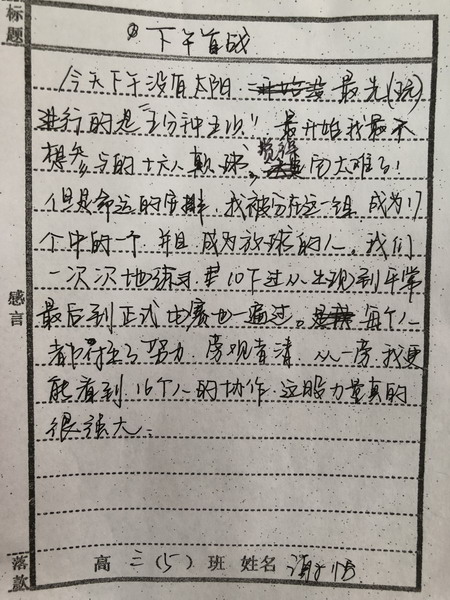 标题
下午首战
今天下午没有太阳 最先(玩)
进行的是"五分钟五次"! 最开始我最不
想参与的十六人鼓球, 觉得 太难了!
但是命运的安排 我被分在这一组 成为17
个中的一个 并且成为放球的人。我们
一次次地练习 10下过从出现到平常
最后到正式比赛也一遍过。每个人
都付出了努力 旁观者清 从一旁我更
能看到16个人的协作 这股力量真的
很强大。
感言
落款
高三(5)班 姓名